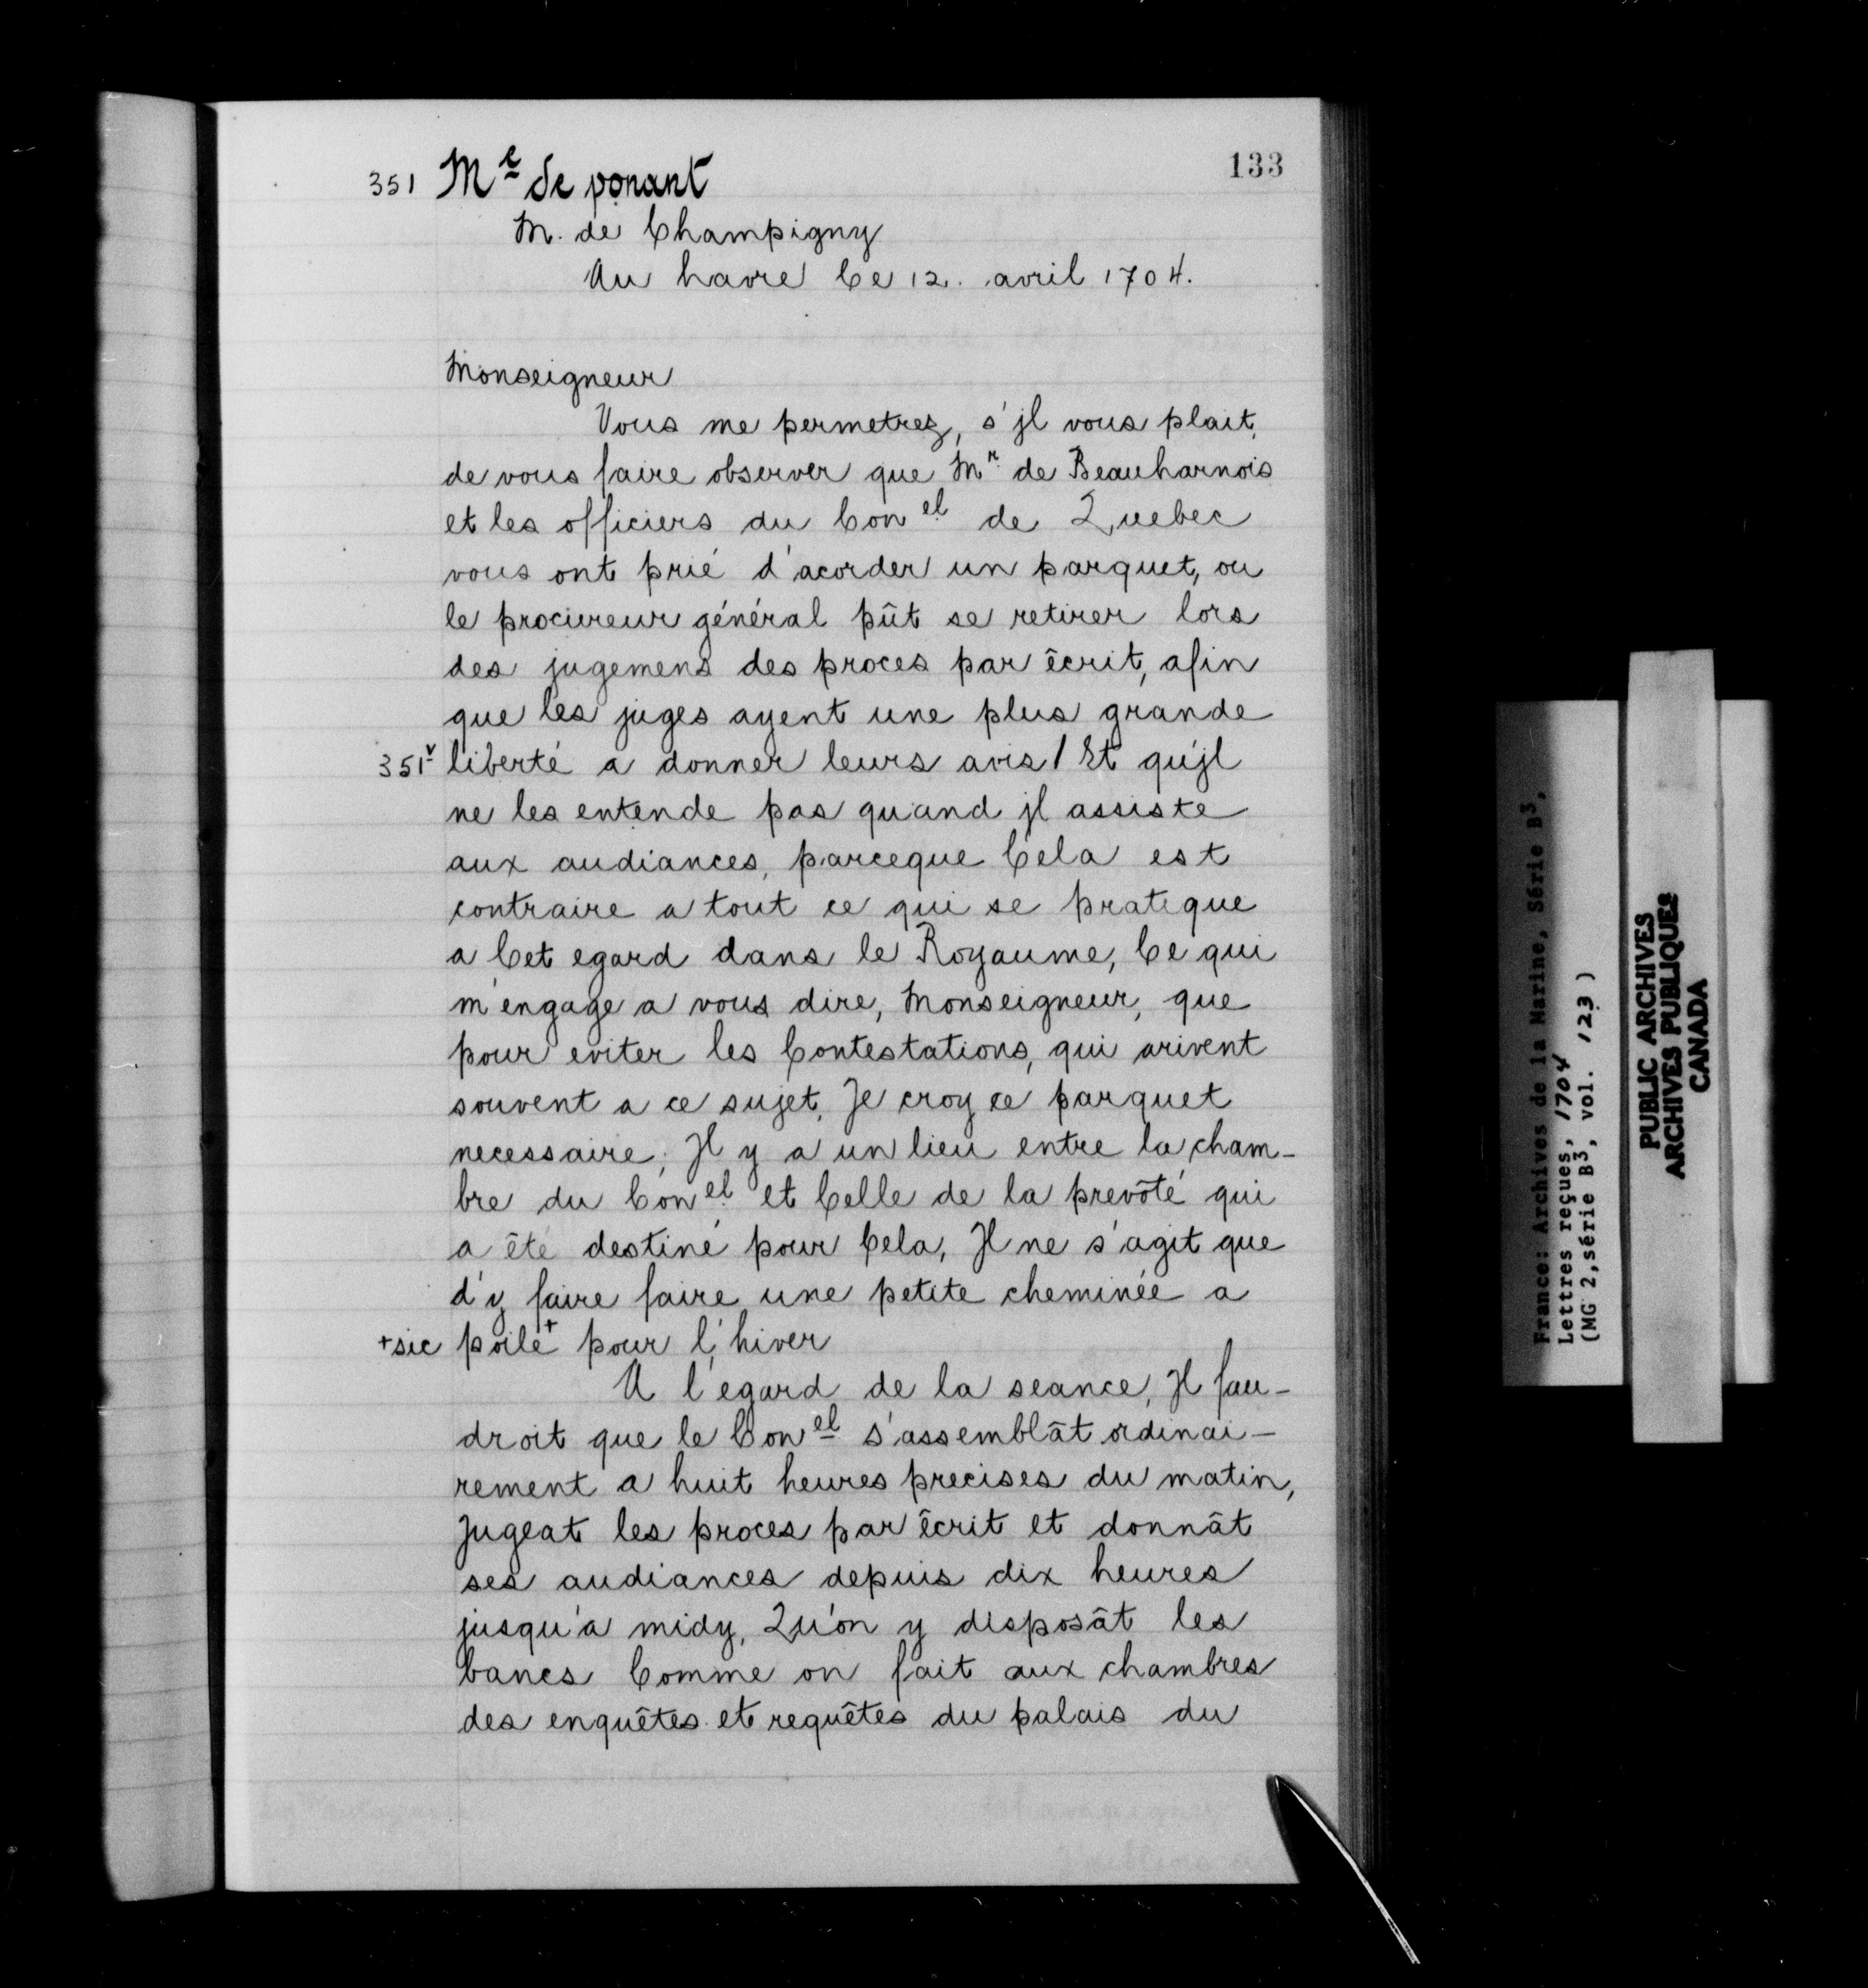 133
351 Me de ponant
M. de Champigny
Au havre Ce 12. avril 1704.
Monseigneur
Vous me permetrez, s'jl vous plait,
de vous faire observer que Mr. de Beauharnois
et les officiers du Conel de Quebec
vous ont prié d'acorder un parquet, ou
le procureur général pût se retirer lors
des jugemens des proces par êcrit, afin
que les juges ayent une plus grande
351v liberté a donner leurs avis / Et qu'jl
ne les entende pas quand jl assiste
aux audiances, parceque Cela est
contraire a tout ce qui se pratique
a Cet egard dans le Royaume, Ce qui
m'engage a vous dire, Monseigneur, que
pour eviter les Contestations, qui arivent
souvent a ce sujet, Je croy ce parquet
necessaire; Jl y a un lieu entre la cham-
bre du Conel et Celle de la prevôté qui
a ête destiné pour Cela, Jl ne s'agit que
d'y faire faire une petite cheminée a
+sic poile+ pour l'hiver
A l'egard de la seance, Jl fau-
droit que le Conel s'assemblât ordinai-
rement a huit heures precises du matin,
Jugeat les proces par êcrit et donnât
ses audiances depuis dix heures
jusqu'a midy, Qu'on y disposât les
bancs Comme on fait aux chambres
des enquêtes et requêtes du palais du
France: Archives de la Marine, Série B3,
Lettres reçues, 1704
(MG 2, série B3, vol. 123)
PUBLIC ARCHIVES
ARCHIVES PUBLIQUES
CANADA